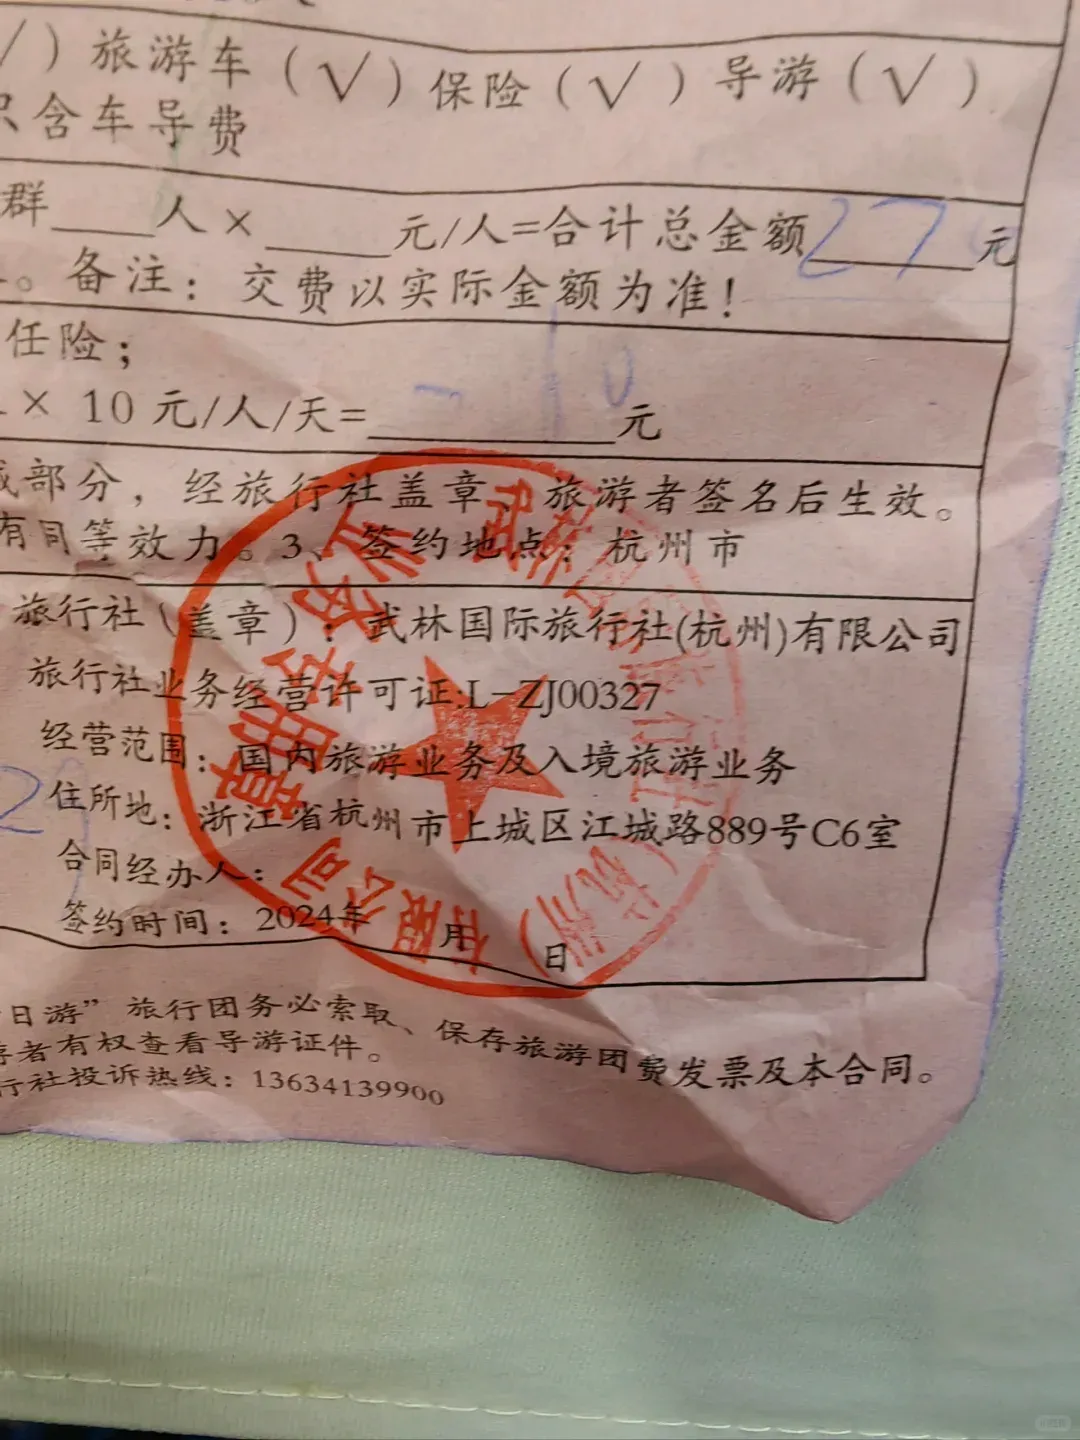 ）旅游车（√）保险（√）导游（√）
只含车导费
群____人×____元/人=合计总金额27 元
。备注：交费以实际金额为准！
任险；
× 10元/人/天=________元
部分，经旅行社盖章、旅游者签名后生效。
有同等效力。3、签约地点：杭州市
旅行社（盖章）：武林国际旅行社(杭州)有限公司
旅行社业务经营许可证:L-ZJ00327
经营范围：国内旅游业务及入境旅游业务
住所地：浙江省杭州市上城区江城路889号C6室
合同经办人：
签约时间：2024年 月 日
日游”旅行团务必索取、保存旅游团费发票及本合同。
游者有权查看导游证件。
行社投诉热线：13634139900